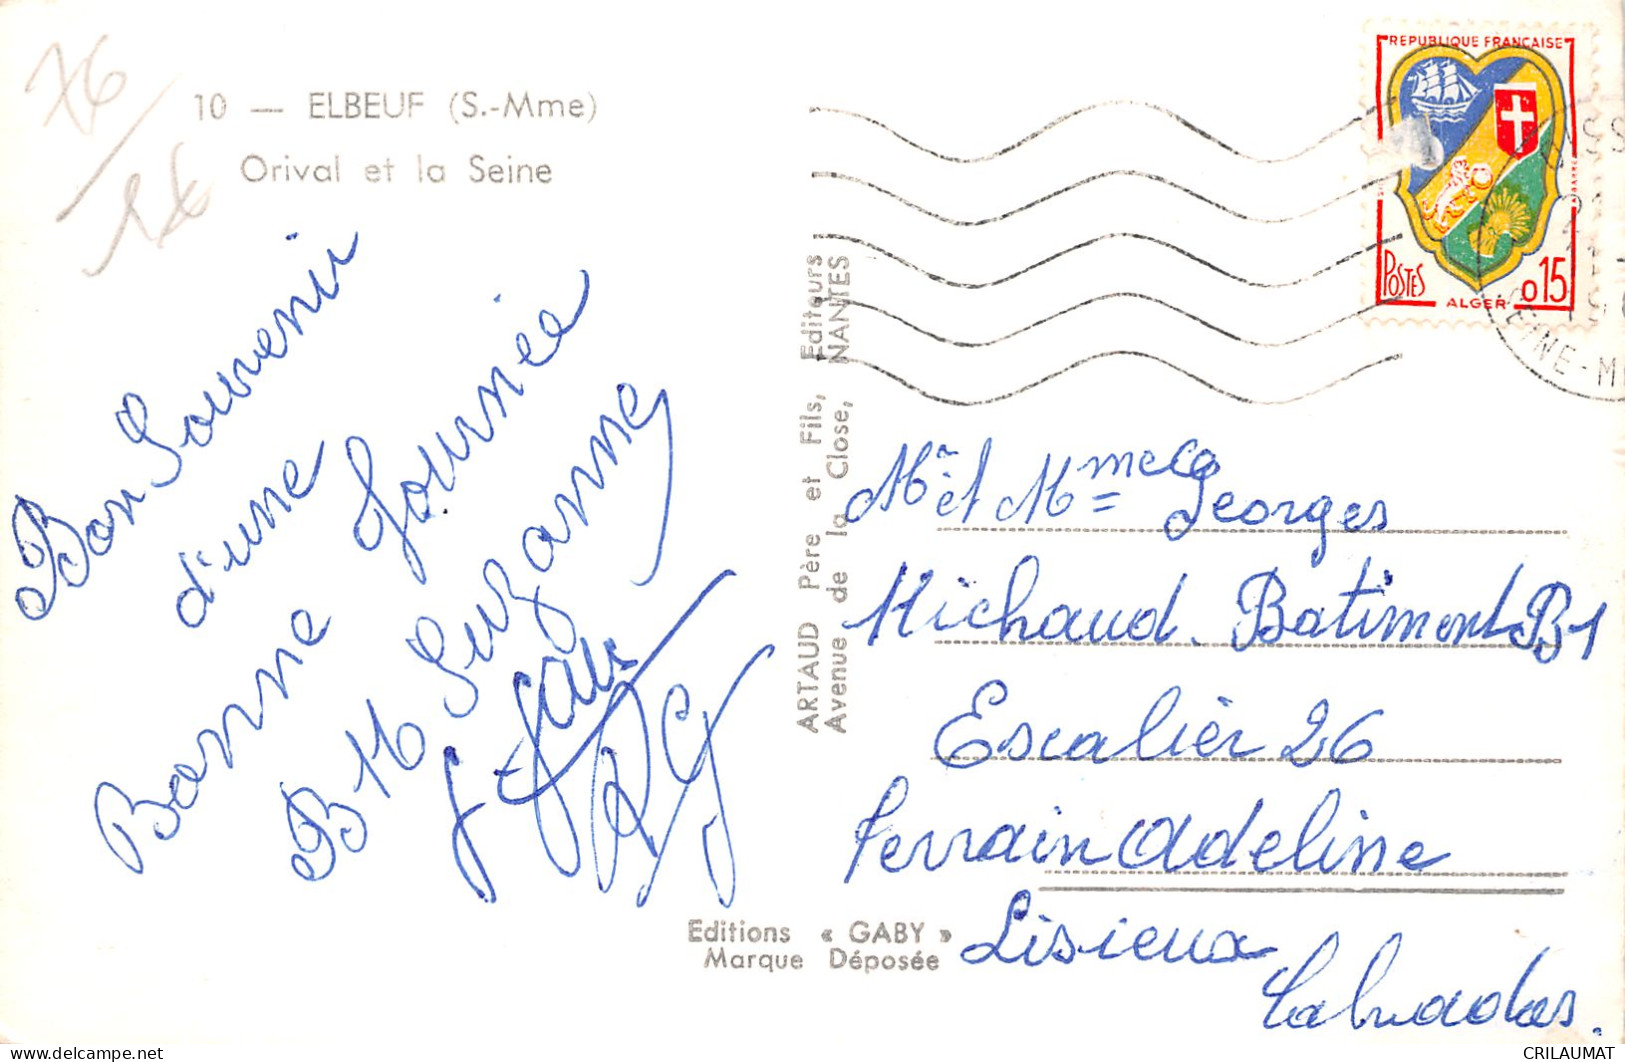 76
10 — ELBEUF (S.-Mme)
Orival et la Seine
Bon Souvenir
d'une
Bonne Journée
B M Suzanne
RG
ARTAUD Père et Fils, Editeurs
Avenue de la Close, NANTES
Editions « GABY »
Marque Déposée
REPUBLIQUE FRANÇAISE
POSTES
ALGER
0.15
EINE-M
Mr et Mme Georges
Michaud. Batiment B1
Escalier 26
Terrain Adeline
Lisieux
Calvados.
CRILAUMAT